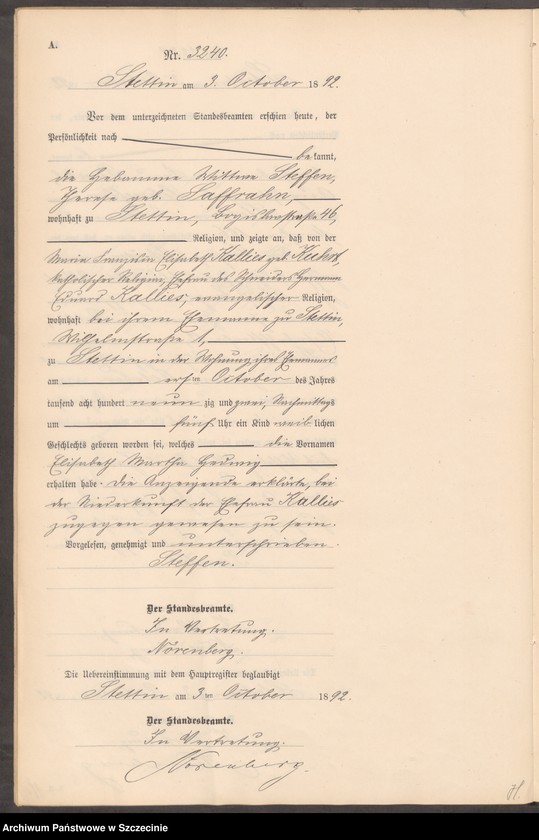 A.
Nr. 3240.
Stettin am 3. October 1892.
Vor dem unterzeichneten Standesbeamten erschien heute, der
Persönlichkeit nach
bekannt,
die Hebamme Wittwe Steffen,
Therese geb. Saffrahn,
wohnhaft zu Stettin, Bogislavstraße 46,
Religion, und zeigte an, daß von der
Maria Franziska Elisabeth Kallies geb.
katholischer Religion, Ehefrau des Schneiders Hermann
Eduard Kallies, evangelischer Religion,
wohnhaft bei ihrem Ehemanne zu Stettin,
Wilhelmstraße 1,
zu Stettin in der Wohnung ihres Ehemannes
am ersten October des Jahres
tausend acht hundert neunzig und zwei, Nachmittags
um fünf Uhr ein Kind weiblichen
Geschlechts geboren worden sei, welches die Vornamen
Elisabeth Martha Hedwig
erhalten habe. Die Anzeigende erklärte, bei
der Niederkunft der Ehefrau Kallies
zugegen gewesen zu sein.
Vorgelesen, genehmigt und unterschrieben.
Steffen.
Der Standesbeamte.
In Vertretung.
Nörenberg.
Die Uebereinstimmung mit dem Hauptregister beglaubigt
Stettin am 3ten October 1892.
Der Standesbeamte.
In Vertretung.
Nörenberg.
Archiwum Państwowe w Szczecinie